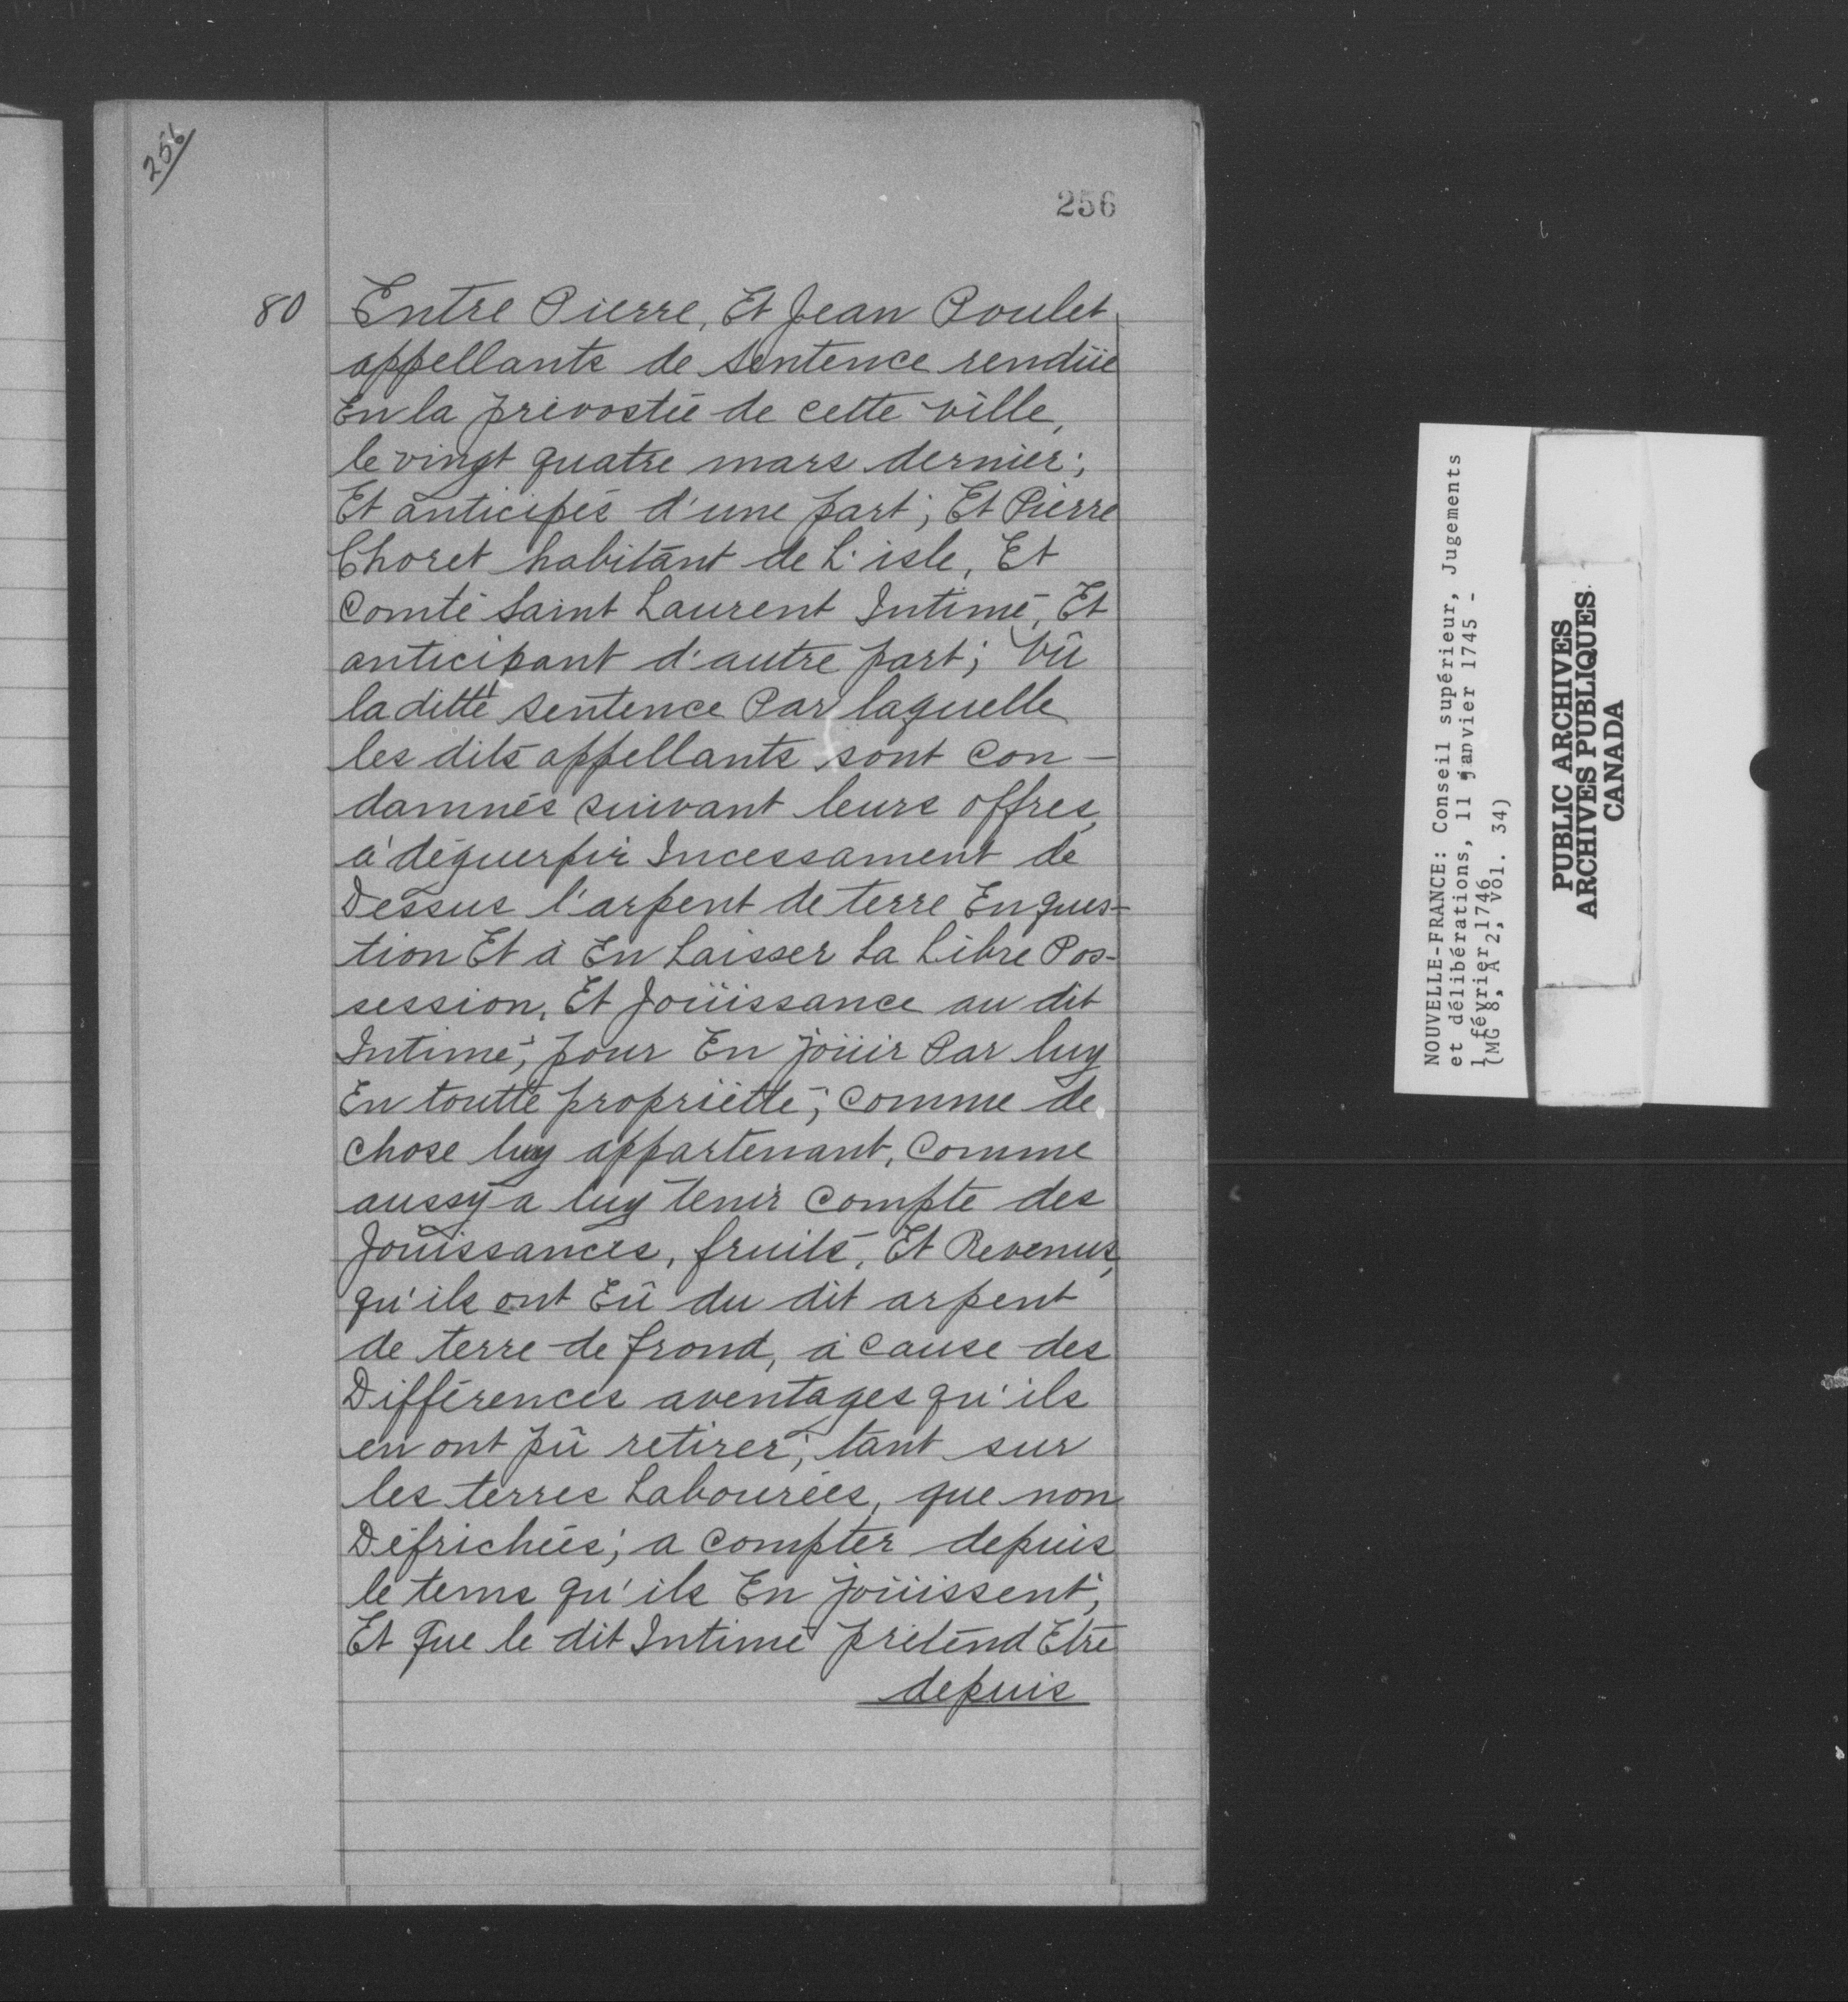 256
256
80 Entre Pierre, Et Jean Poulet
appellants de sentence rendüe
En la prévostée de cette ville,
le vingt quatre mars dernier;
Et anticipés d'une part; Et Pierre
Choret habitant de L'isle, Et
Comté Saint Laurent Intimé, Et
anticipant d'autre part; Vû
la ditte sentence Par laquelle
les dits appellants sont con-
damnés suivant leurs offres,
à déguerpir Incessament de
Dessus l'arpent de terre En ques-
tion Et à En Laisser La Libre Pos-
session, Et Joüissance au dit
Intimé; pour En joüir Par luy
En toutte propriëtté; comme de
chose luy appartenant, Comme
aussy a luy tenir compte des
Joüissances, fruits, Et Revenus,
qu'ils ont Eû du dit arpent
de terre de frond, à cause des
Différences aventages qu'ils
en ont pû retirer; tant sur
les terres Labourées, que non
Défrichées; a compter depuis
le tems qu'ils En joüissent;
Et Que le dit Intimé prétend Etre
depuis
NOUVELLE-FRANCE: Conseil supérieur, Jugements
et délibérations, 11 janvier 1745 -
1 février 1746
(MG 8, A 2, vol. 34)
PUBLIC ARCHIVES
ARCHIVES PUBLIQUES
CANADA